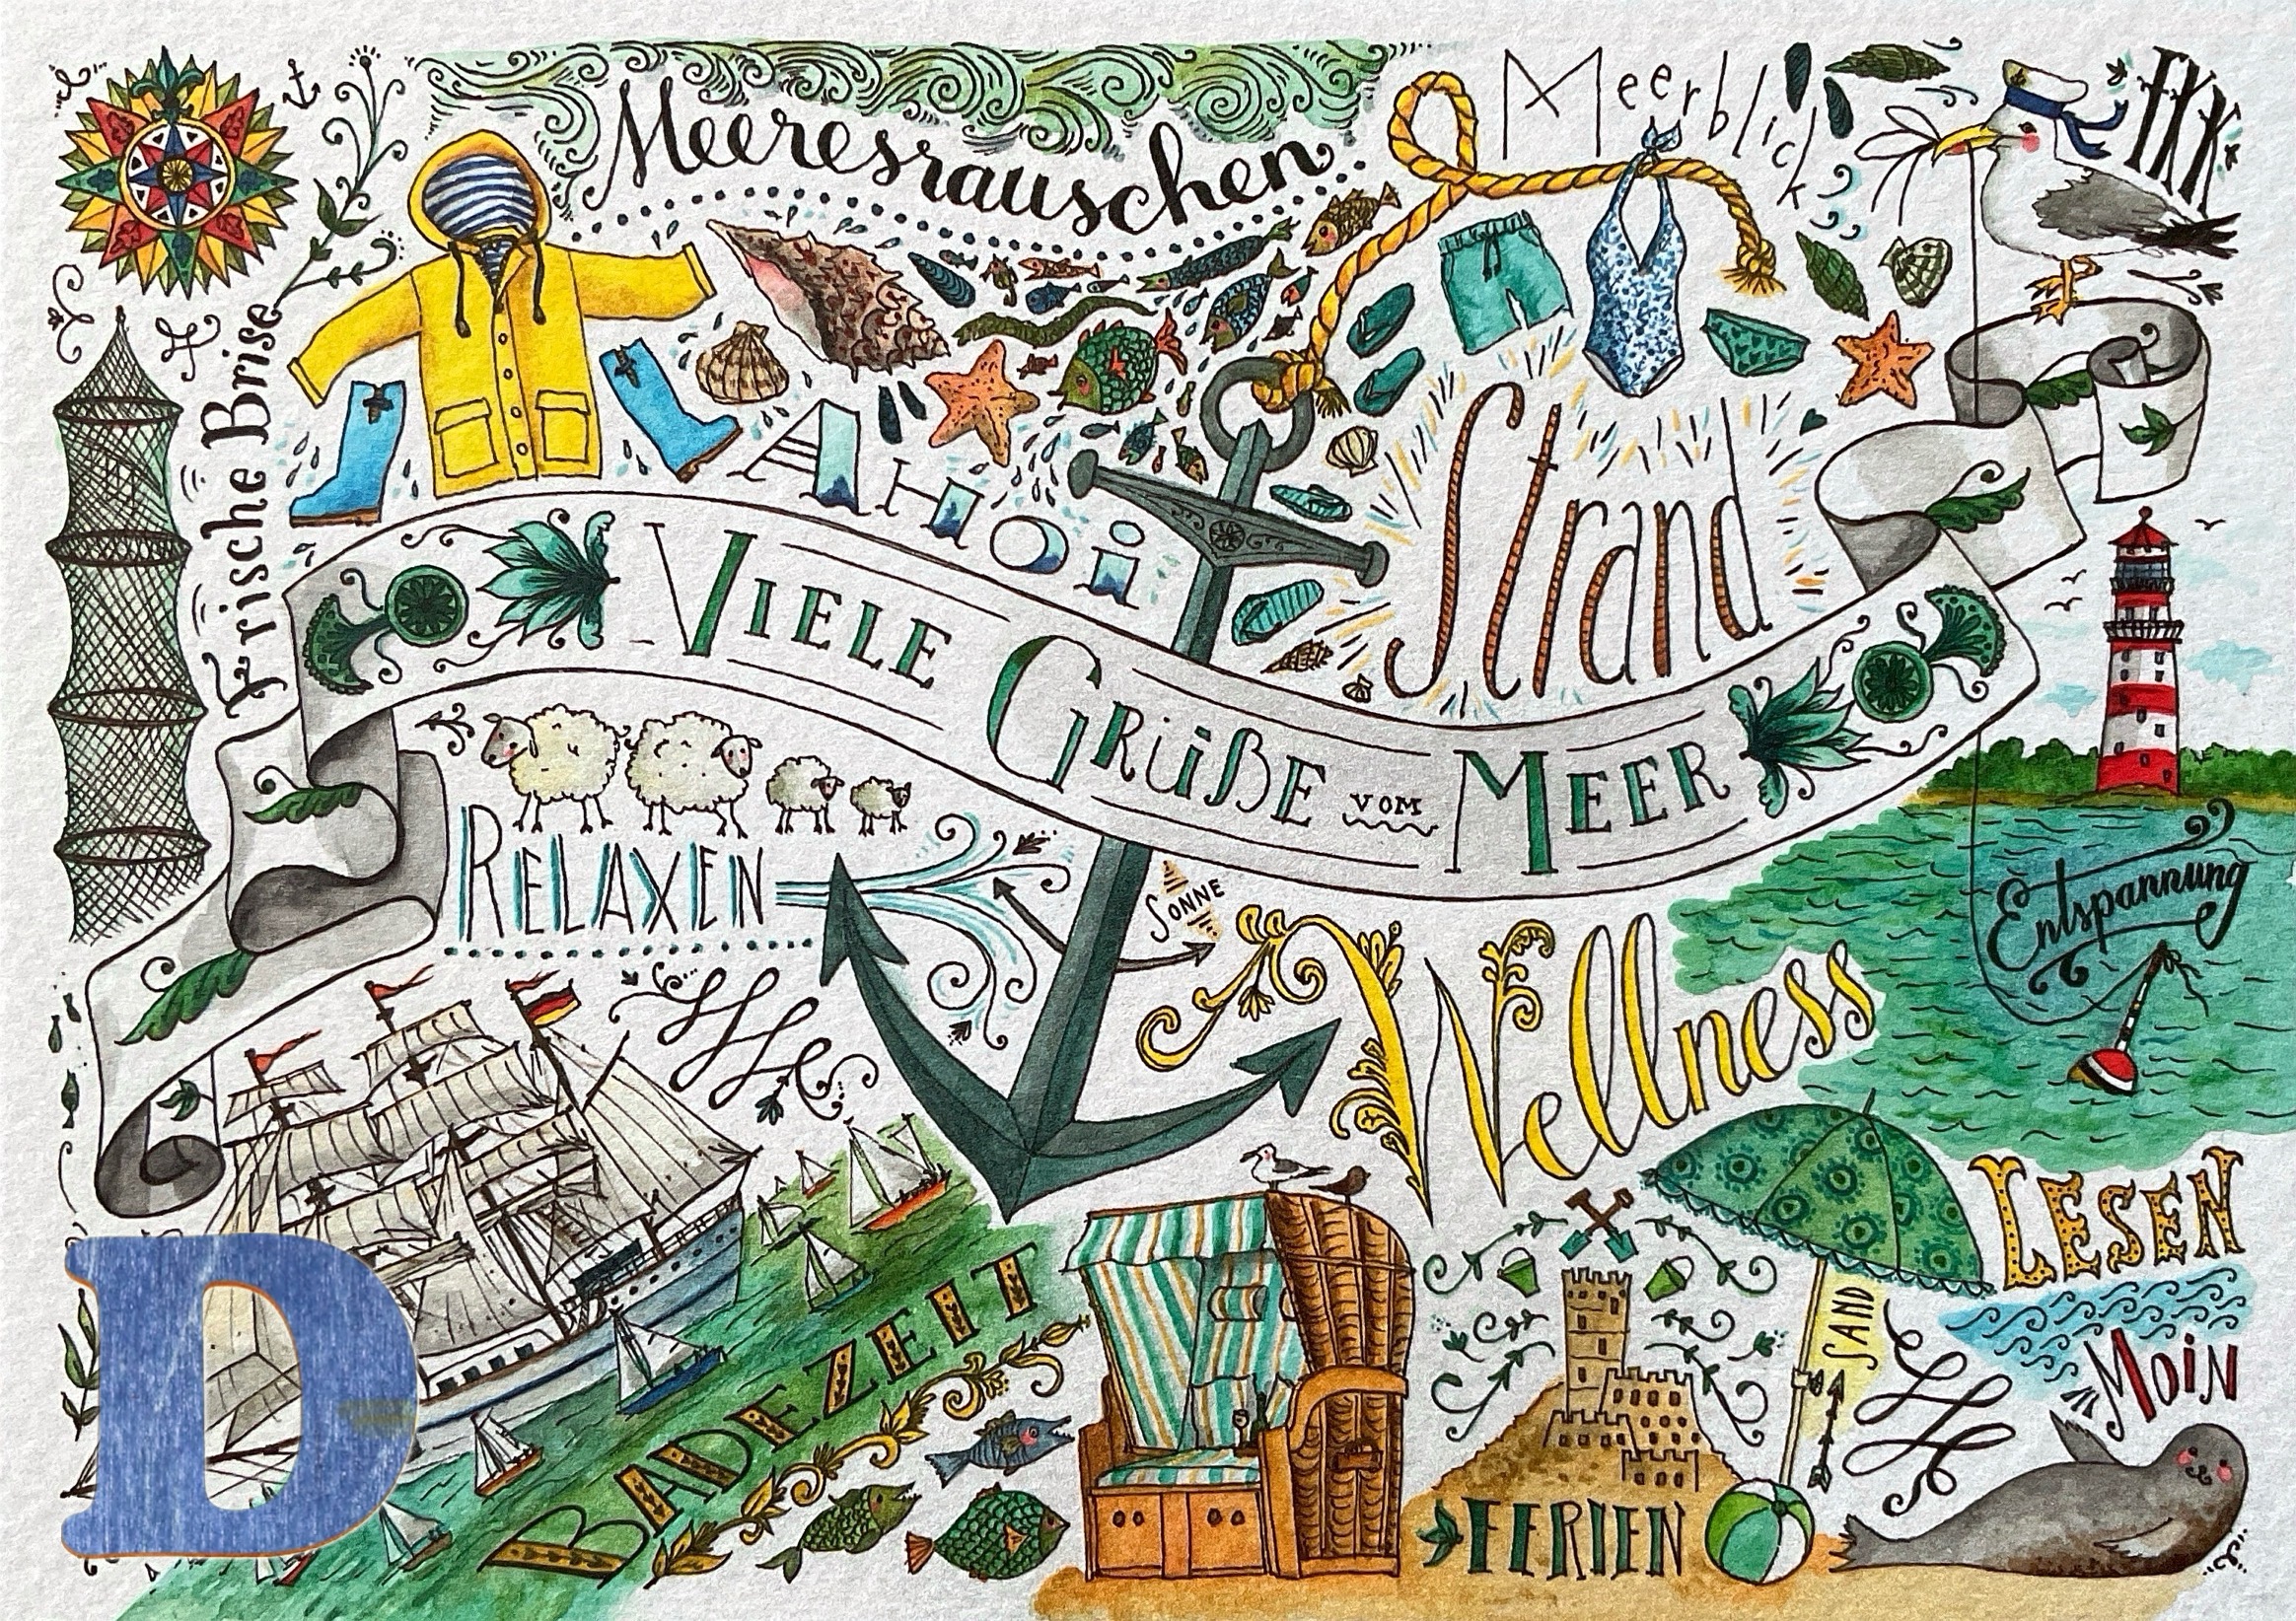 Meeresrauschen
Meerblick
FKK
Frische Brise
AHOi
Strand
VIELE GRÜßE VOM MEER
RELAXEN
SONNE
Wellness
Entspannung
LESEN
SAND
MOiN
BADEZEIT
FERIEN
D